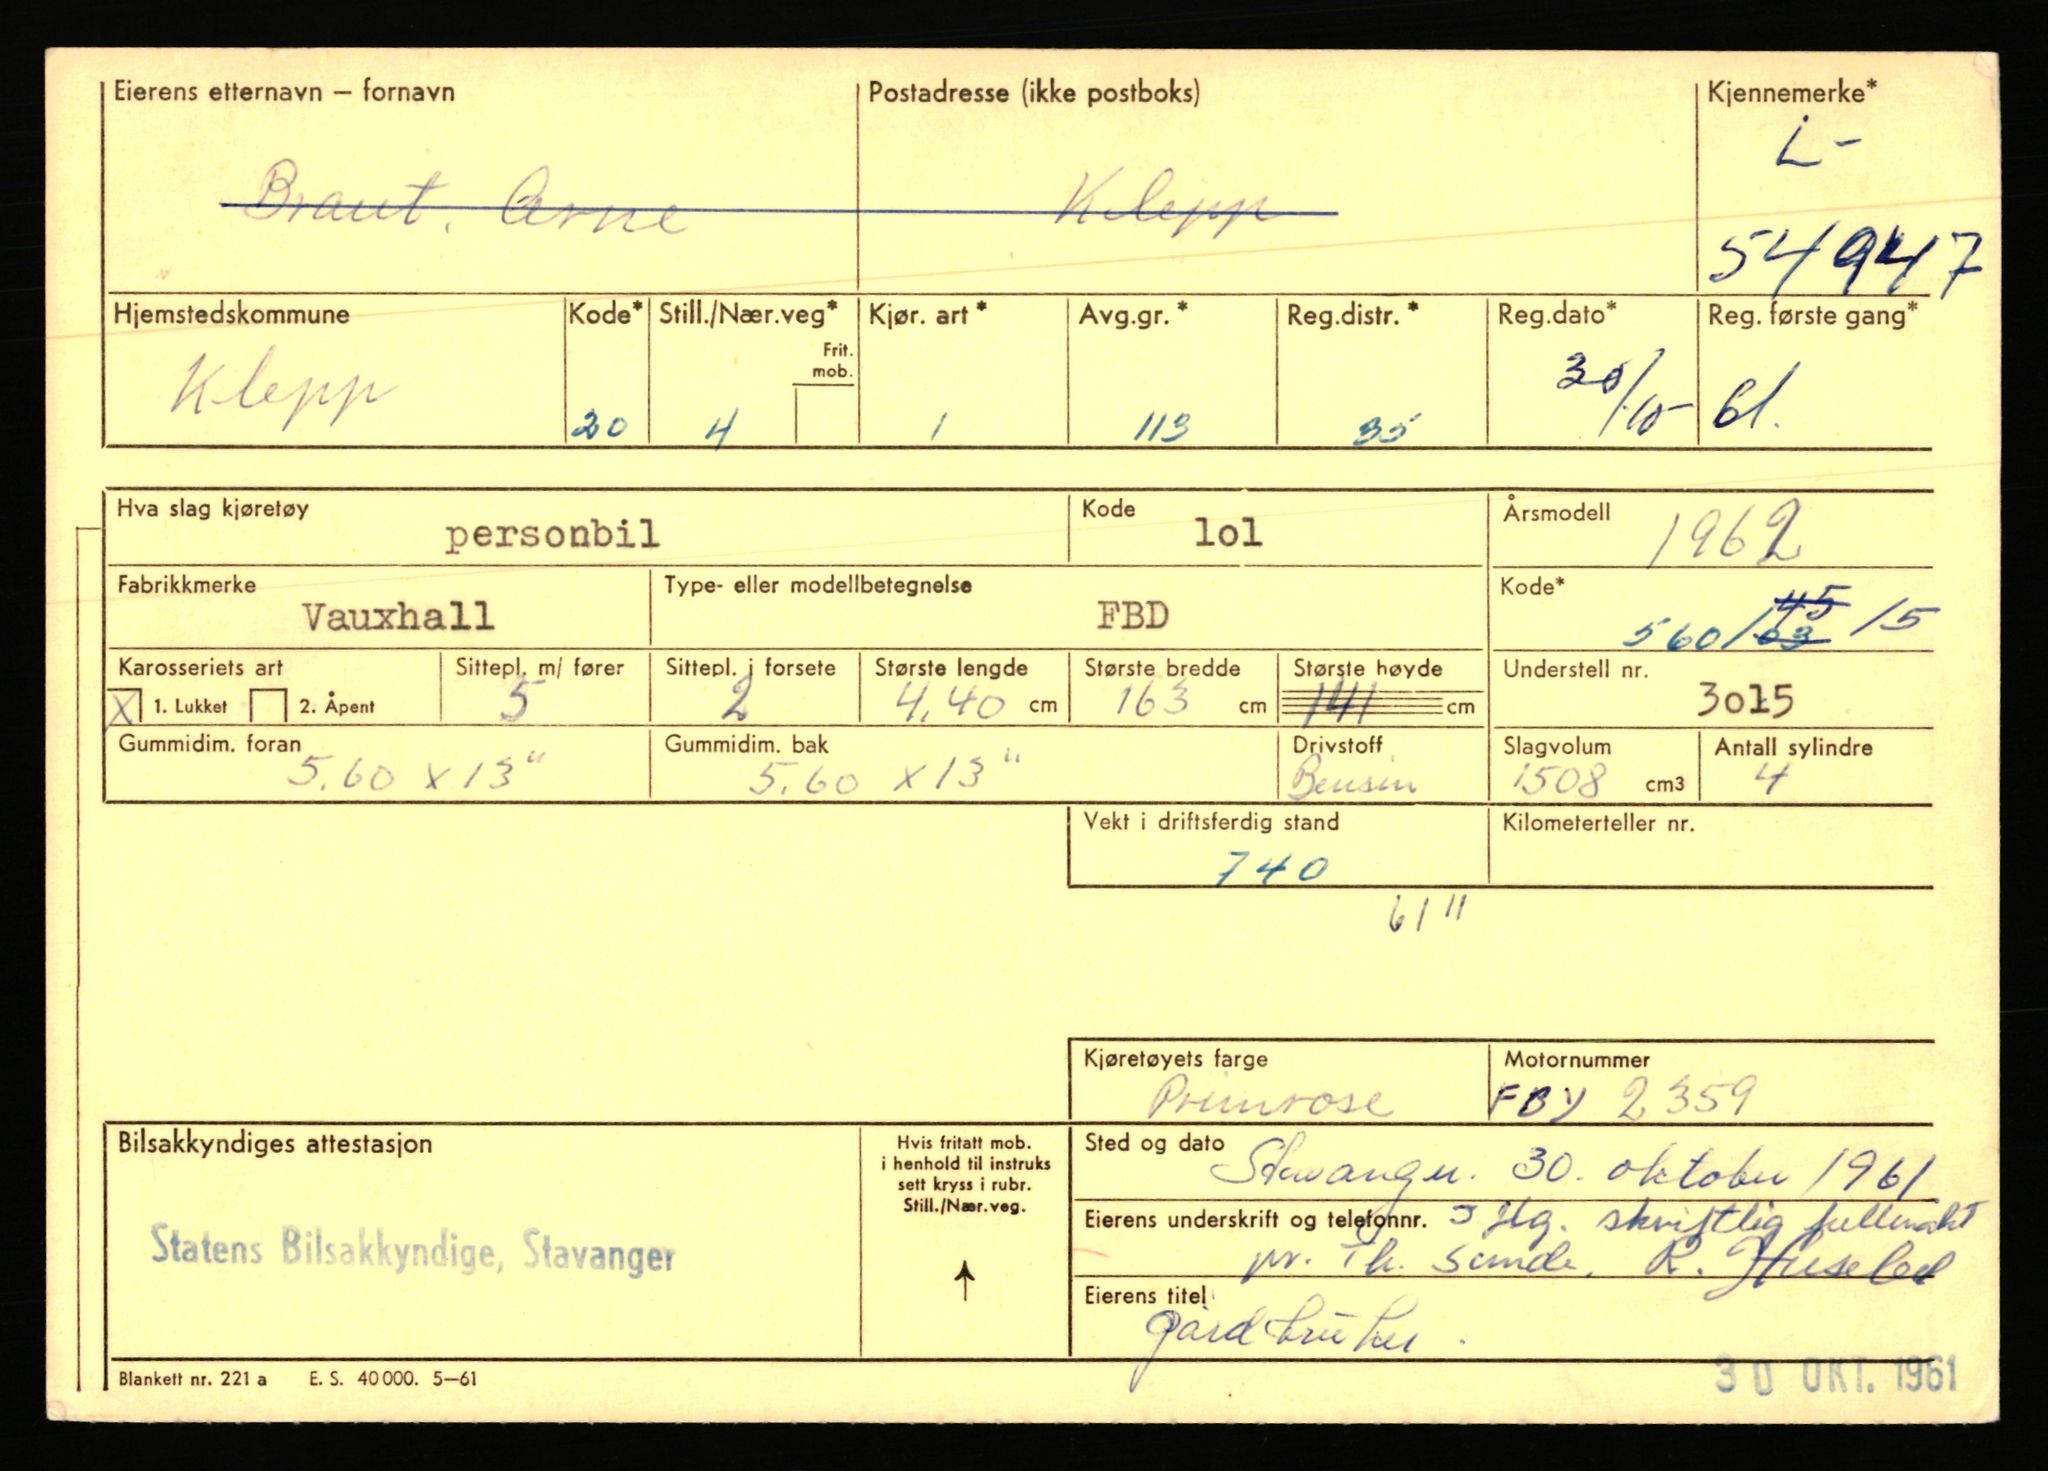 Eierens etternavn – fornavn Postadresse (ikke postboks) Kjennemerke*
L-
Braut, Arne Klepp
54947
Hjemstedskommune Kode* Still./Nær.veg* Kjør. art* Avg.gr.* Reg.distr.* Reg.dato* Reg. første gang*
Frit.
mob.
Klepp 20 4 1 113 35 30/10- 61.
Hva slag kjøretøy Kode Årsmodell
personbil 101 1962
Fabrikkmerke Type- eller modellbetegnelse Kode*
Vauxhall FBD 560/03 45 15
Karosseriets art Sittepl. m/ fører Sittepl. i forsete Største lengde Største bredde Største høyde Understell nr.
X 1. Lukket 2. Åpent 5 2 4,40 cm 163 cm 141 cm 3015
Gummidim. foran Gummidim. bak Drivstoff Slagvolum Antall sylindre
5.60 x 13" 5.60 x 13" Bensin 1508 cm3 4
Vekt i driftsferdig stand Kilometerteller nr.
740
61"
Kjøretøyets farge Motornummer
Primrose FBY 2359
Bilsakkyndiges attestasjon
Statens Bilsakkyndige, Stavanger
Hvis fritatt mob.
i henhold til instruks
sett kryss i rubr.
Still./Nær.veg.
Sted og dato Stavanger. 30. oktober 1961
Eierens underskrift og telefonnr. Iflg. skriftlig fullmakt
pr. Th. Sunde. R.
Eierens titel
Gårdbruker.
Blankett nr. 221 a E. S. 40 000. 5–61
30 OKT. 1961